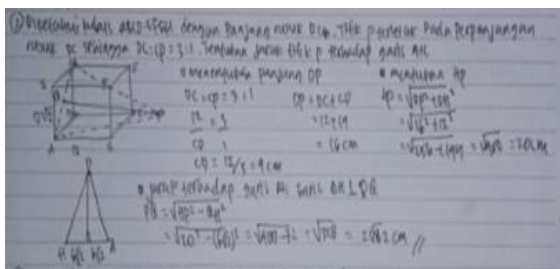 ① Diketahui kubus ABCD.EFGH dengan Panjang rusuk 12 cm. Titik p terletak Pada Perpanjangan
rusuk DC sehingga DC:CP = 3:1. Tentukan jarak titik p terhadap garis AH
• menentukan panjang DP
DC:CP = 3:1
12 = 3
CP 1
CP = 12/3 = 4 cm
DP = DC + CP
= 12 + 4
= 16 cm
• menentukan AP
AP = √DP² + DA²
= √16² + 12²
= √256 + 144 = √400 = 20 cm
A 12 B
• jarak terhadap garis AH
= √20² - (6√2)² = √400 - 72 = √328 = 2√82 cm //
H 6√2 6√2 A